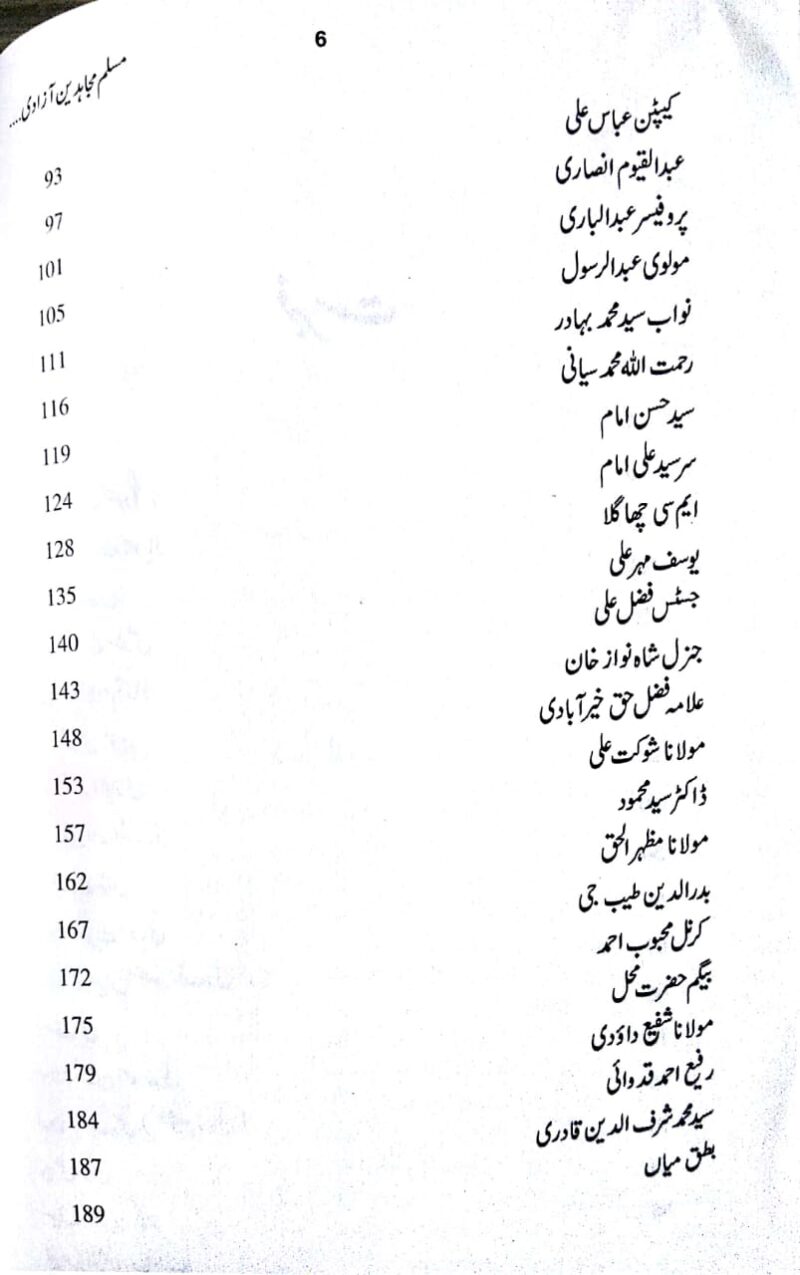 6
مسلم مجاہدین آزادی....
کیپٹن عباس علی 93
عبدالقیوم انصاری 97
پروفیسر عبدالباری 101
مولوی عبدالرسول 105
نواب سید محمد بہادر 111
رحمت اللہ محمد سیانی 116
سید حسن امام 119
سر سید علی امام 124
ایم سی چھاگلا 128
یوسف مہر علی 135
جسٹس فضل علی 140
جنرل شاہ نواز خان 143
علامہ فضل حق خیرآبادی 148
مولانا شوکت علی 153
ڈاکٹر سید محمود 157
مولانا مظہر الحق 162
بدرالدین طیب جی 167
کرنل محبوب احمد 172
بیگم حضرت محل 175
مولانا شفیع داؤدی 179
رفیع احمد قدوائی 184
سید محمد شرف الدین قادری 187
بطق میاں 189